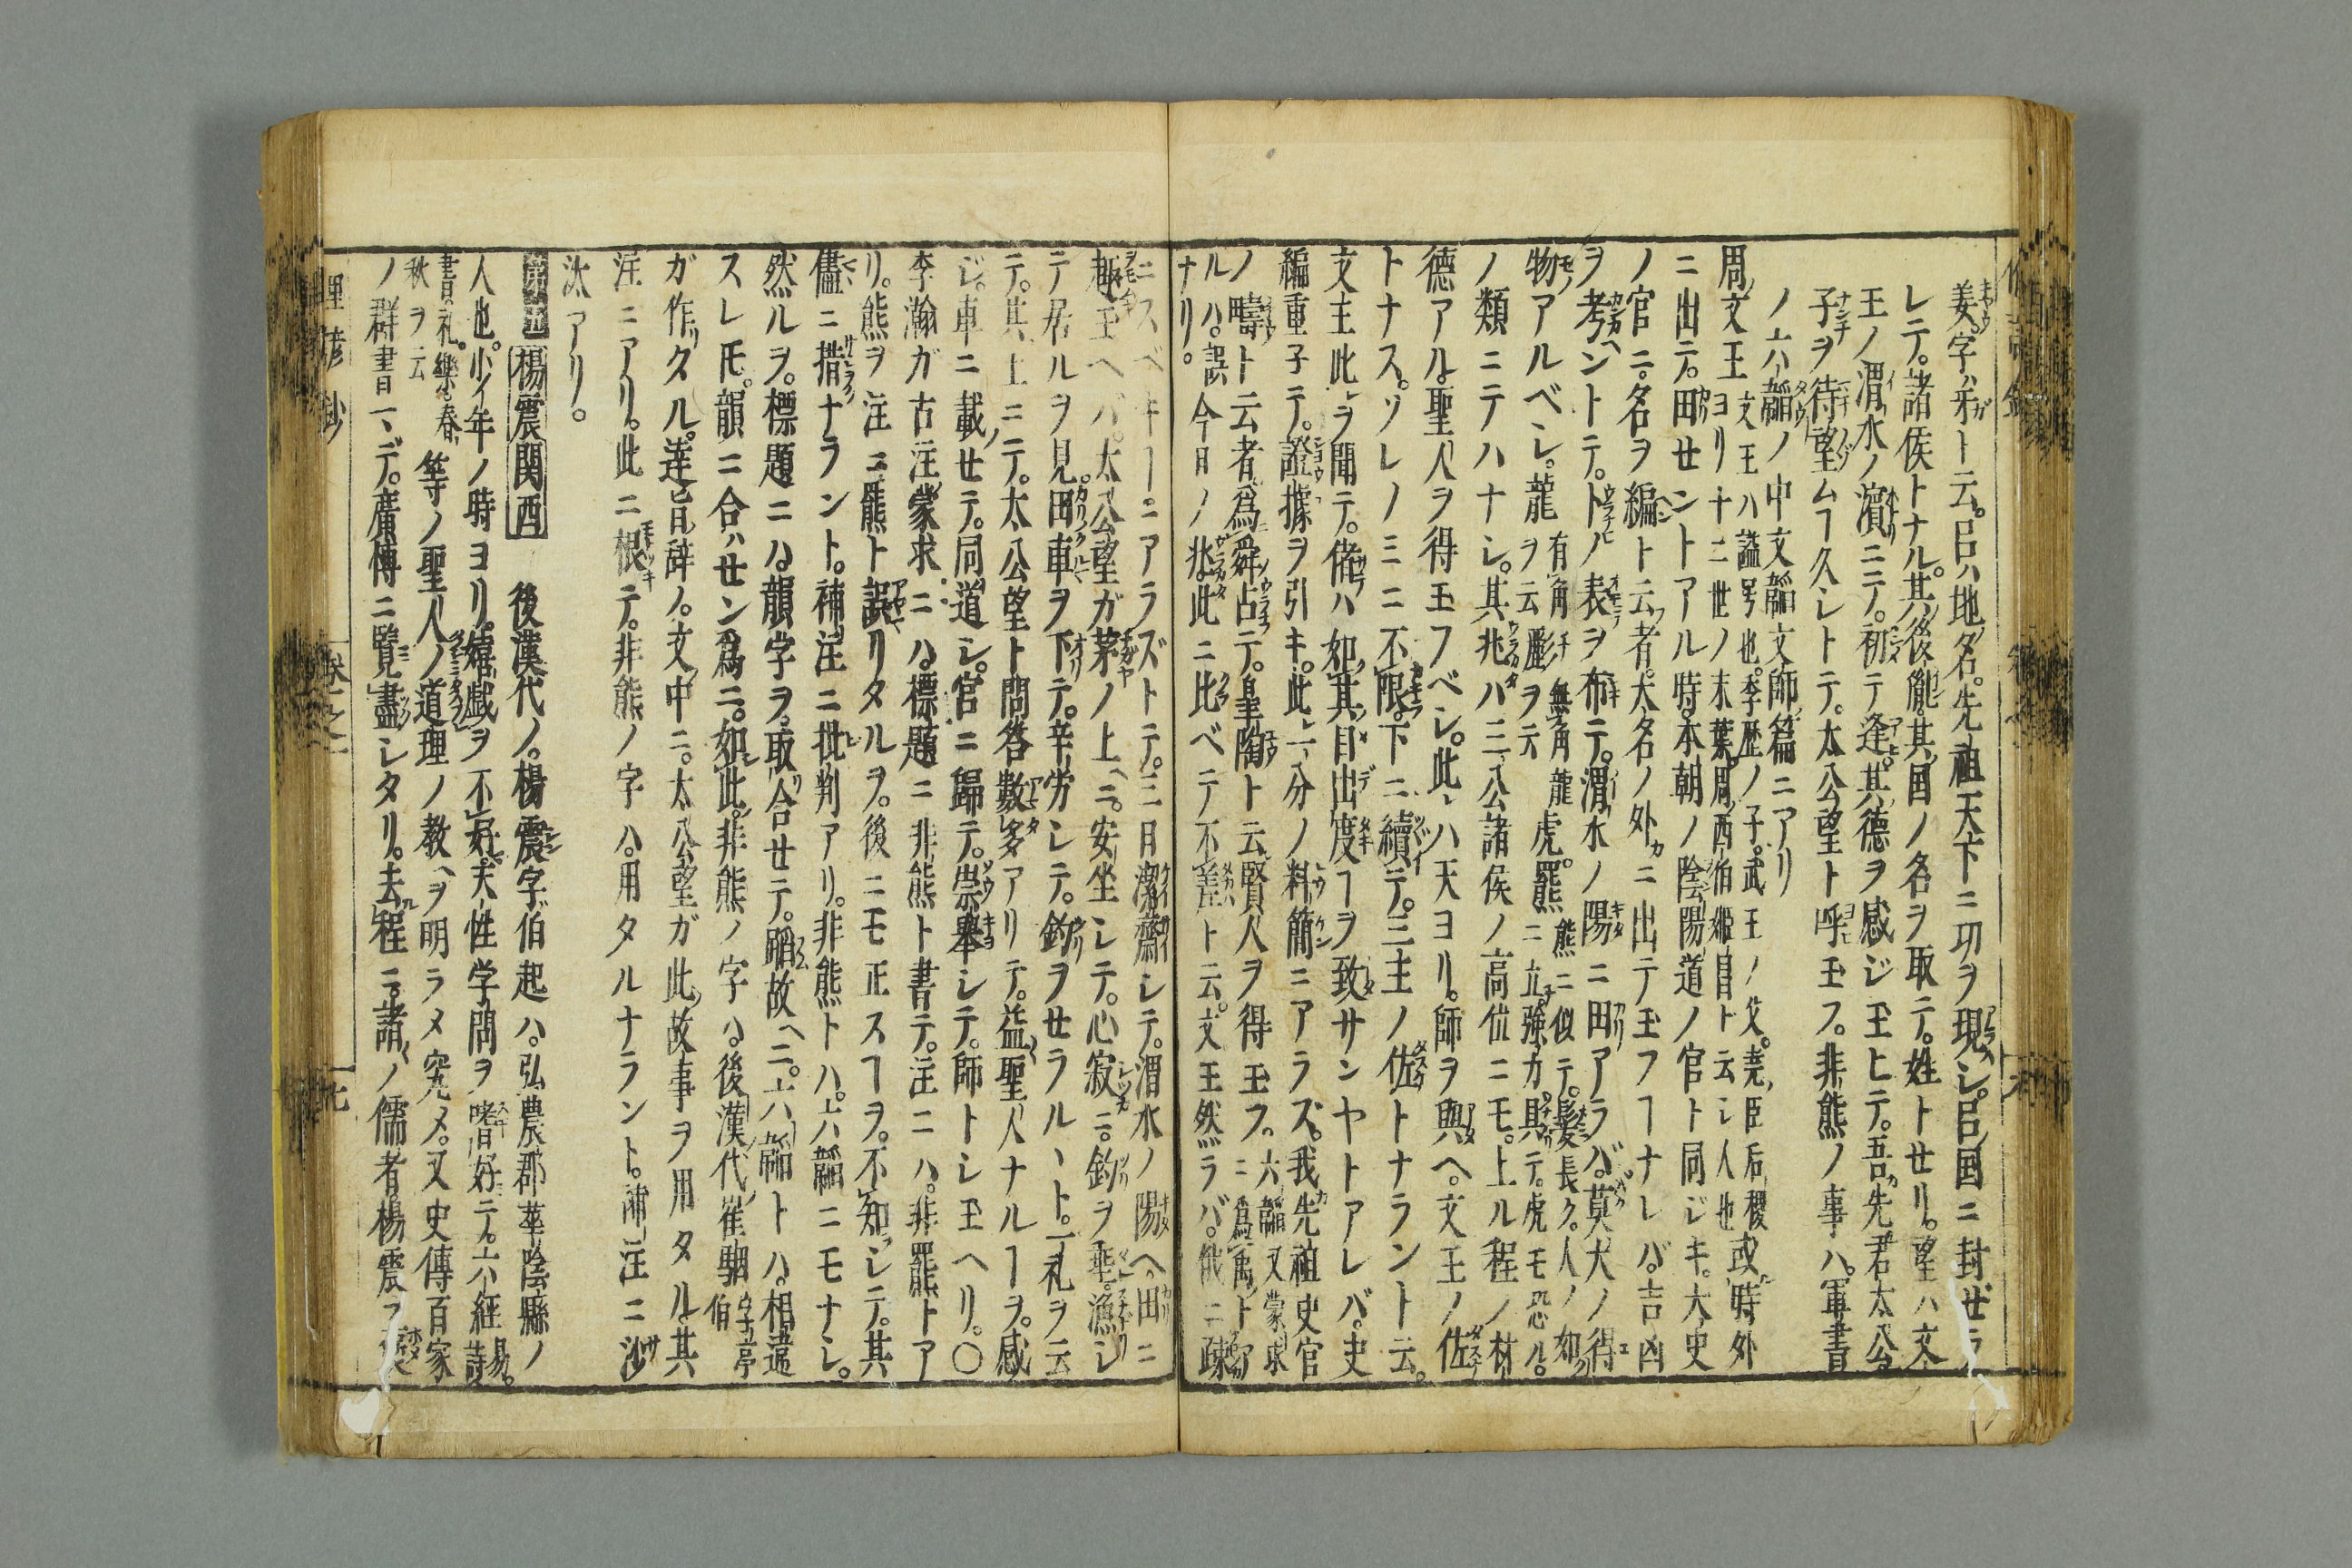 姜。字ハ牙ト云。呂ハ地ノ名。先祖天下ニ功ヲ現シ。呂国ニ封ゼラ
レテ。諸侯トナル。其ノ後胤。其国ノ名ヲ取テ。姓トセリ。望ハ文
王ノ渭水ノ濱ニテ。初テ逢。其德ヲ感ジ玉ヒテ。吾先君太公
子ヲ待望ムヿ久シトテ。太公望ト呼玉フ。非熊ノ事ハ。軍書
ノ六韜ノ中文韜文師篇ニアリ
周ノ文王文王ハ謚号也。季歴ノ子。武王ノ父。堯ノ臣后稷ヨリ十二世ノ末葉。周ノ西伯姫昌ト云シ人也或時外
ニ出テ。田セントアル時。本朝ノ陰陽道ノ官ト同ジキ。大史
ノ官ニ。名ヲ編ト云者。大名ノ外ニ出テ玉フヿナレバ。吉凶
ヲ考ヘントテ。トノ表ヲ布テ。渭水ノ陽ニ田アラバ。莫大ノ得
物アルベシ。龍有角ヲ云彲無角龍ヲ云虎。羆熊ニ似テ。髮長ク。人ノ如クニ立。強力。其テ。虎モ恐ル。
ノ類ニテハナシ。其兆ハ三公諸侯ノ高位ニモ。上ル程ノ材
德アル。聖人ヲ得玉フベシ。此ハ天ヨリ。師ヲ與ヘ。文王ノ佐
トナス。ソレノミニ不限。下ニ續テ。三主ノ佐トナラント云。
文王此ヲ聞テ。偖ハ如其目出度ヿヲ致サンヤトアレバ。史
編重子テ。證據ヲ引キ。此一分ノ料簡ニアラズ。我先祖史官
ノ疇ト云者。爲舜占テ。皐陶ト云賢人ヲ得玉フ。六韜ニ爲禹ト又蒙求
ルハ。誤今日ノ兆此ニ比ベテ不差ト云。文王然ラバ。俄ニ疎
ナリ。
ニスベキヿニアラズトテ。三日潔齋シテ。渭水ノ陽ヘ。田ニ
趣玉ヘバ。太公望ガ茅ノ上ニ。安坐シテ。心寂ニ。釣ヲ垂。漁シ
テ居ルヲ見。田車ヲ下テ。辛労シテ。釣ヲセラルヽト。一礼ヲ云
テ。其上ニテ。太公望ト問答數多アリテ。益聖人ナルヿヲ。感
ジ。車ニ載セテ。同道シ。官ニ歸テ。崇擧シテ。師トシ玉ヘリ。〇
李瀚ガ古注蒙求ニハ。標題ニ非熊ト書テ。注ニハ。非羆トア
リ。熊ヲ注ニ熊ト誤リタルヲ。後ニモ正スヿヲ。不知シテ。其
儘ニ措ナラント。補注ニ批判アリ。非熊トハ。六韜ニモナシ。
然ルヲ。標題ニハ韻字ヲ。取合セテ。蹈故ヘニ。六韜トハ。相違
スレ𪜈。韻ニ合ハセン爲ニ。如此。非熊ノ字ハ。後漢代崔駰字ハ亭伯
ガ作タル。達旨辞ノ。文ノ中ニ。太公望ガ此故事ヲ用タル。其
注ニアリ。此ニ根テ。非熊ノ字ハ。用タルナラント。補注ニ沙
汰アリ。
第五 楊震関西　後漢代ノ。楊震字伯起ハ。弘農郡華陰縣ノ
人也。少年ノ時ヨリ。嬉戯ヲ不好。天性学問ヲ嗜好ニテ。六經詩易。
書。礼。樂。春秋ヲ云等ノ聖人ノ道理ノ教ヘヲ明ラメ究メ。又史傳百家
ノ群書マデ。廣博ニ覽盡シタリ。去程ニ。諸ノ儒者楊震ヲ褒